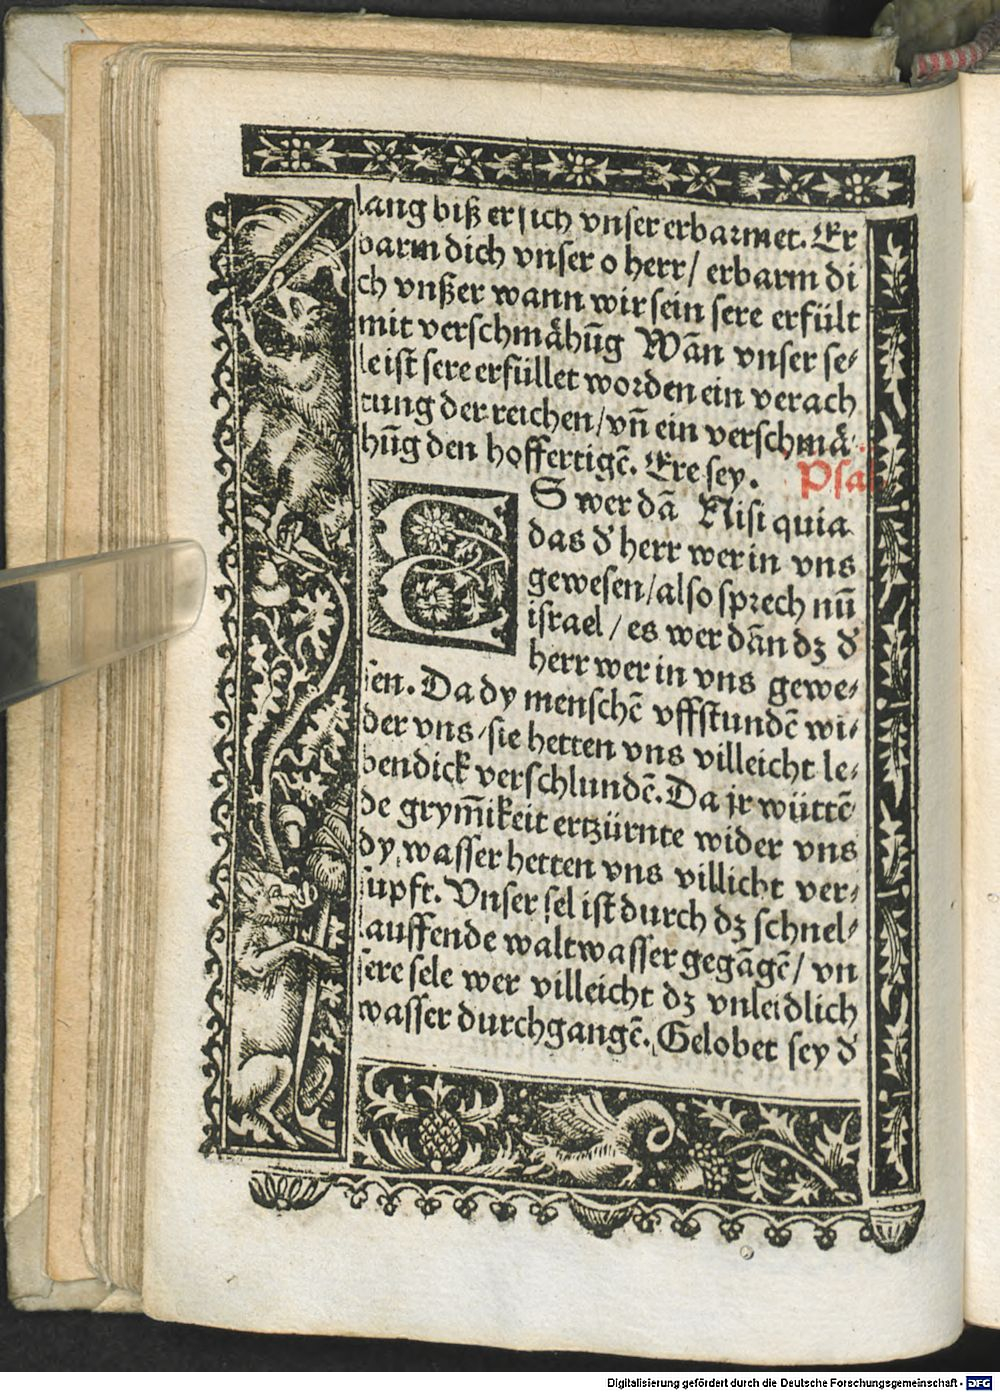 lang biß er sich vnser erbarmet. Er
barm dich vnser o herr / erbarm di
ch vnßer wann wir sein sere erfült
mit verschmähūg Wān vnser se⸗
le ist sere erfüllet worden ein verach
tung der reichen / vn̄ ein verschmä⸗
hūg den hoffertigē. Ere sey. Psal
ES wer dā Nisi quia
das d' herr wer in vns
gewesen / also sprech nū
israel / es wer dān dʒ d'
herr wer in vns gewe⸗
sen. Da dy menschē vffstundē wi⸗
der vns / sie hetten vns villeicht le⸗
bendick verschlundē. Da jr wüttē⸗
de grym̄ikeit ertzürnte wider vns
dy wasser hetten vns villicht ver⸗
supft. Vnser sel ist durch dʒ schnel⸗
lauffende waltwasser gegāgē / vn
sere sele wer villeicht dʒ vnleidlich
wasser durchgangē. Gelobet sey d'
Digitalisierung gefördert durch die Deutsche Forschungsgemeinschaft - DFG